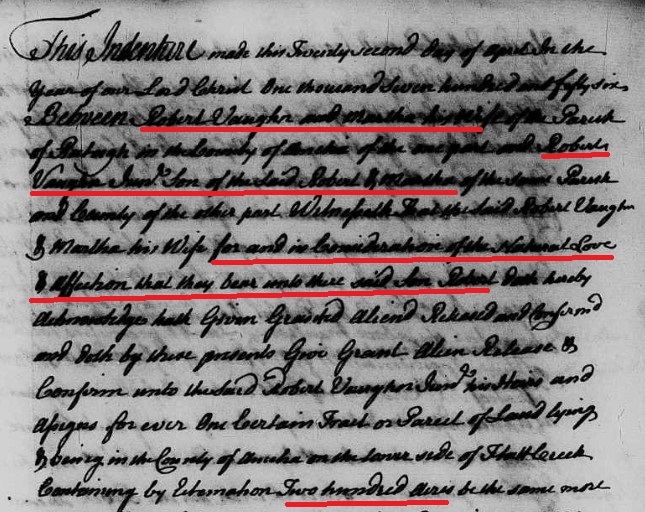 This Indenture made this Twenty second Day of april In the
Year of our Lord Christ One thousand Seven hundred and fifty six
Between Robert Vaughn and Martha his Wife of the Parish
of Raleigh in the County of Amelia of the one part and Robert
Vaughn Junr. Son of the Said Robert & Martha of the same Parish
and County of the other part Witnesseth That the said Robert Vaughn
& Martha his Wife for and in Consideration of the Natural Love
& affection that they bear unto their said Son Robert doth hereby
acknowledge hath Given Granted Aliend Released and Confirmd
and doth by these presents Give Grant Alien Release &
Confirm unto the said Robert Vaughn Junr. his Heirs and
assigns for ever One Certain Tract or Parcel of Land lying
& being in the County of Amelia on the lower side of Flatt Creek
Containing by Estemation Two hundred acres be the same more